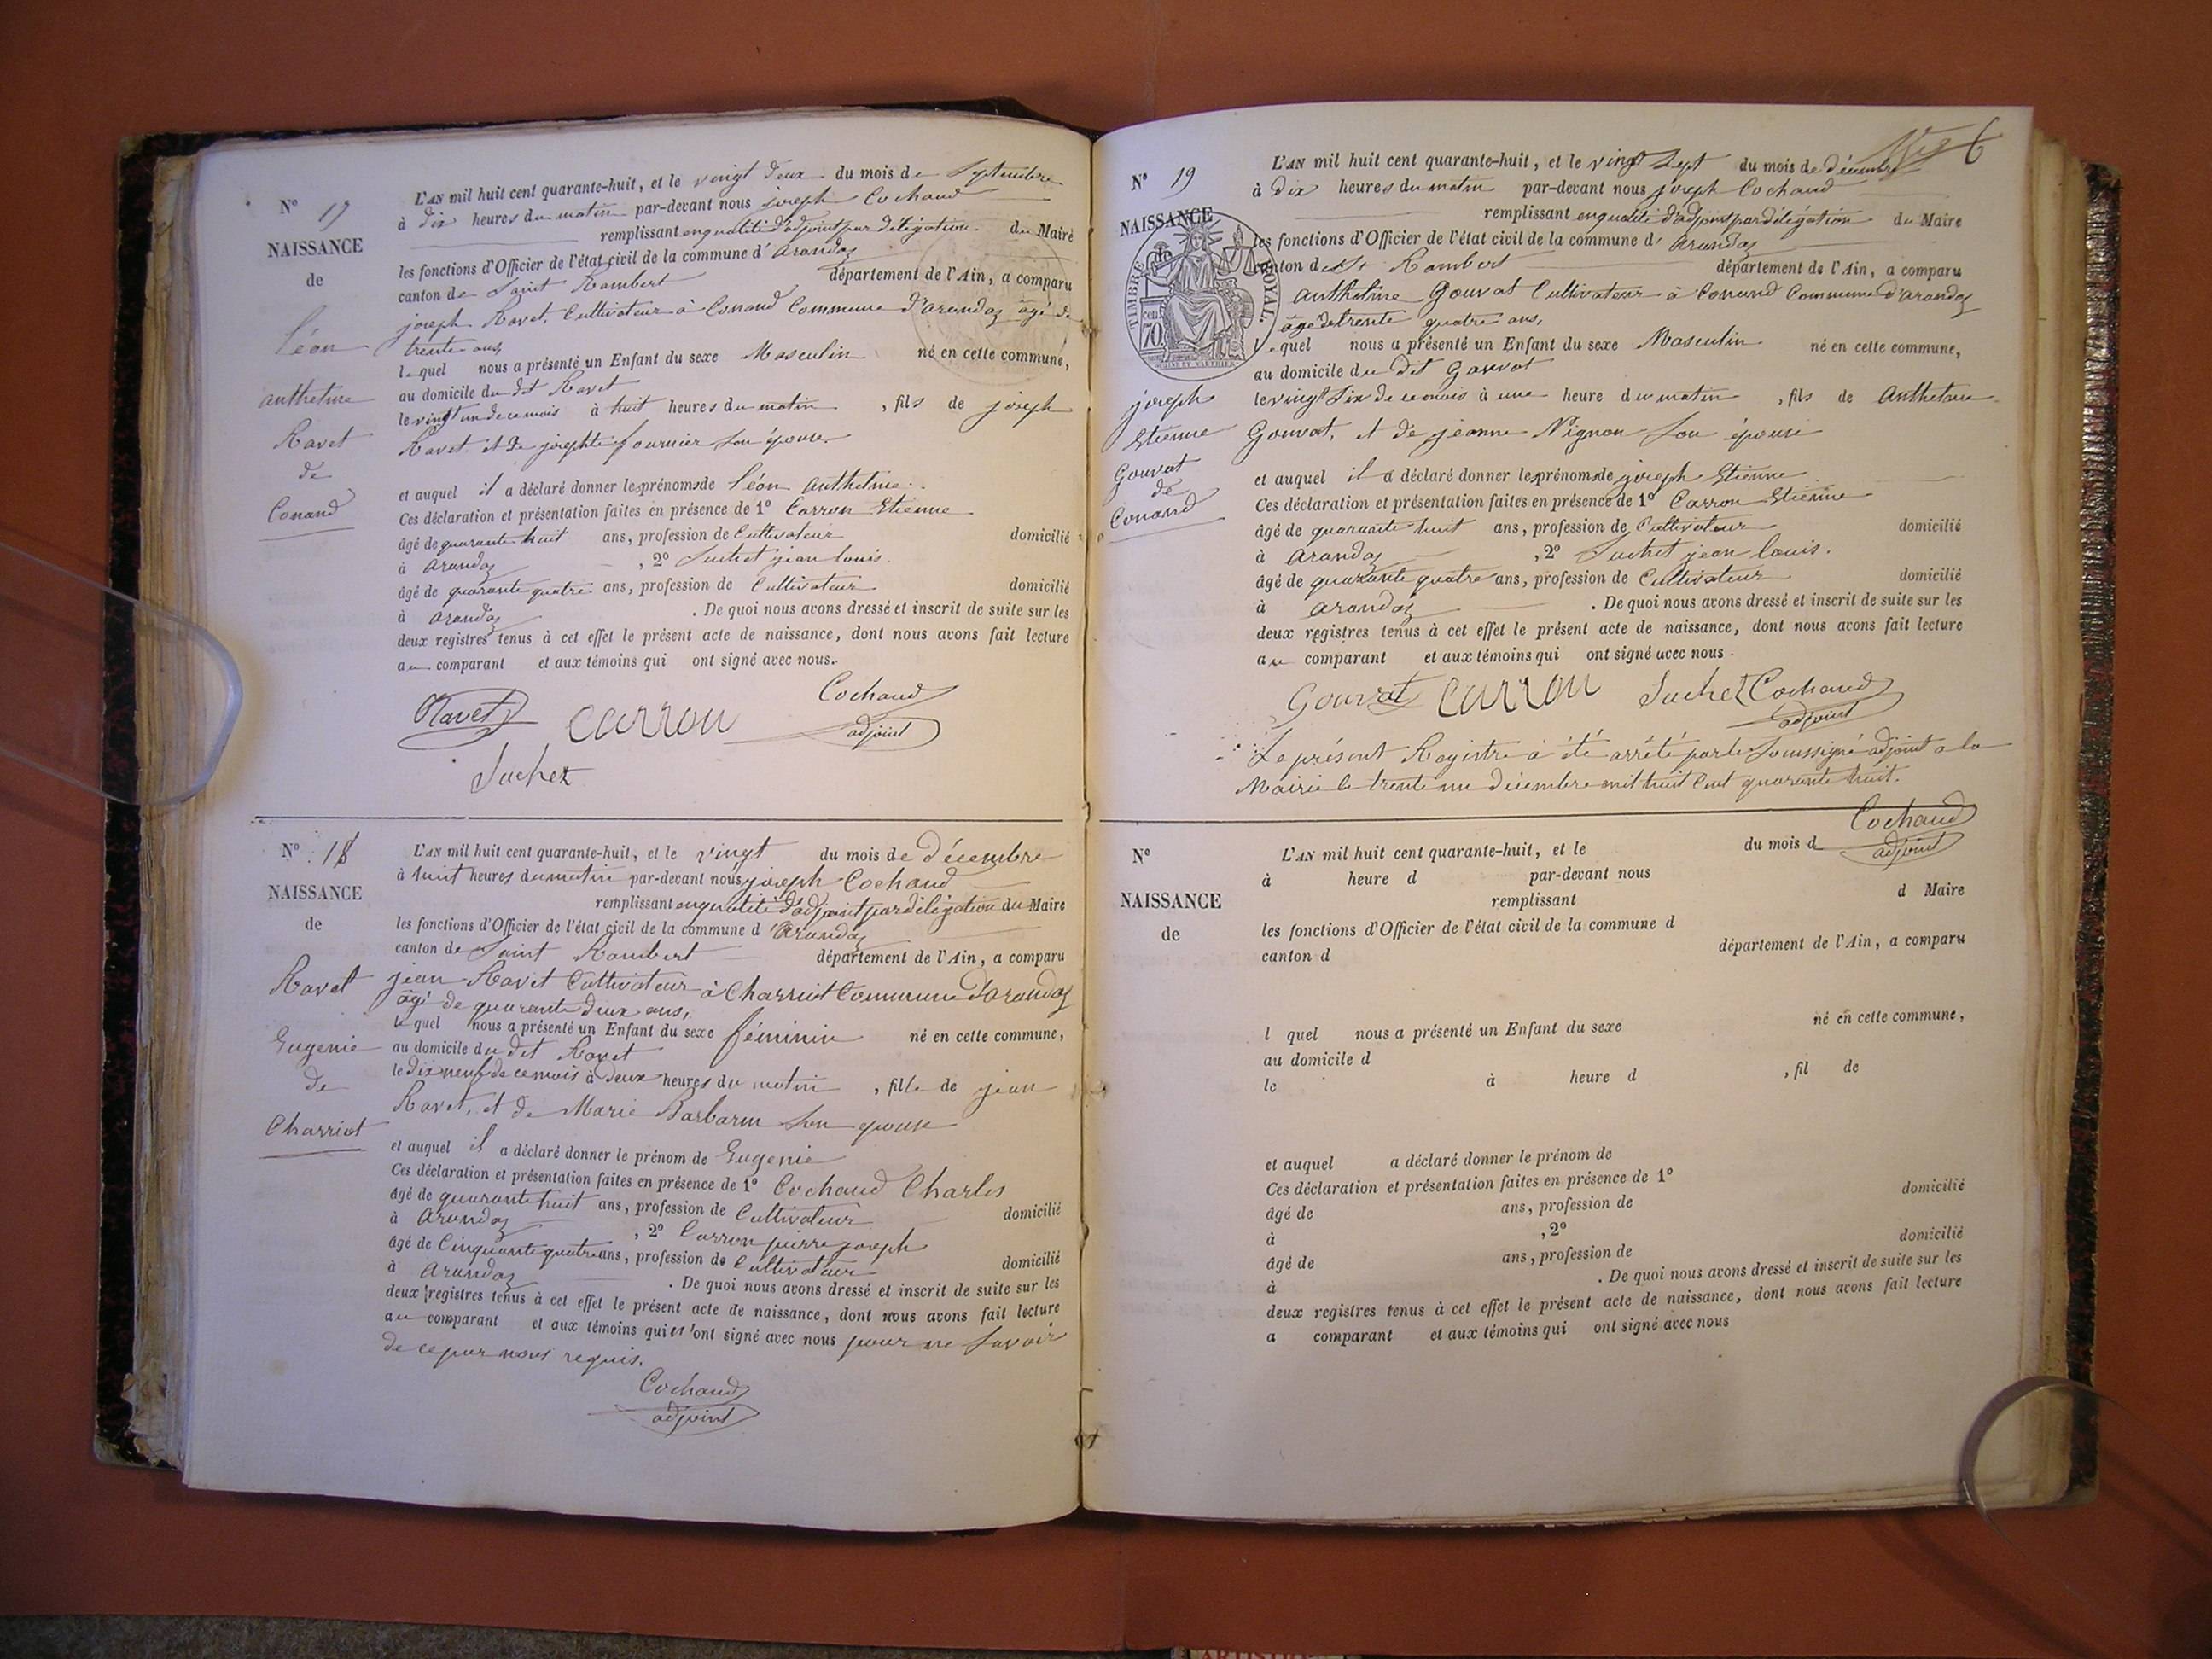 N° 17
NAISSANCE
de
Léon
anthelme
Ravet
de
Conand
L'AN mil huit cent quarante-huit, et le vingt deux du mois de Septembre
à dix heures du matin par-devant nous joseph Cochaud
remplissant en qualité d'adjoint par délégation du Maire
les fonctions d'Officier de l'état civil de la commune d' arandaz
canton de Saint Rambert département de l'Ain, a comparu
joseph Ravet, Cultivateur à Conand Commune d'arandaz âgé de
trente ans,
lequel nous a présenté un Enfant du sexe Masculin né en cette commune,
au domicile du dit Ravet
le vingt un de ce mois à huit heures du matin, fils de joseph
Ravet et de josephte fournier son épouse.
et auquel il a déclaré donner les prénoms de Léon anthelme.
Ces déclaration et présentation faites en présence de 1° Carron Etienne
âgé de quarante huit ans, profession de Cultivateur domicilié
à arandaz, 2° Suchet jean louis.
âgé de quarante quatre ans, profession de Cultivateur domicilié
à arandaz. De quoi nous avons dressé et inscrit de suite sur les
deux registres tenus à cet effet le présent acte de naissance, dont nous avons fait lecture
au comparant et aux témoins qui ont signé avec nous.
Ravet Carron Cochaud
adjoint
Suchet
N° 18
NAISSANCE
de
Ravet
Eugenie
de
Charriot
L'AN mil huit cent quarante-huit, et le vingt du mois de décembre
à huit heures du matin par-devant nous joseph Cochaud
remplissant en qualité d'adjoint par délégation du Maire
les fonctions d'Officier de l'état civil de la commune d'arandaz
canton de Saint Rambert département de l'Ain, a comparu
jean Ravet Cultivateur à Charriot Commune d'arandaz
âgé de quarante deux ans,
lequel nous a présenté un Enfant du sexe féminin né en cette commune,
au domicile du dit Ravet
le dix neuf de ce mois à deux heures du matin, fille de jean
Ravet, et de Marie Barbarin son epouse
et auquel il a déclaré donner le prénom de Eugenie
Ces déclaration et présentation faites en présence de 1° Cochaud Charles
âgé de quarante huit ans, profession de Cultivateur domicilié
à arandaz, 2° Carron pierre joseph
âgé de Cinquante quatre ans, profession de Cultivateur domicilié
à arandaz. De quoi nous avons dressé et inscrit de suite sur les
deux registres tenus à cet effet le présent acte de naissance, dont nous avons fait lecture
au comparant et aux témoins qui n'ont signé avec nous pour ne savoir
de ce par nous requis.
Cochaud
adjoint
6
N° 19
NAISSANCE
de
TIMBRE ROYAL
70
joseph
Etienne
Gouvat
de
Conand
L'AN mil huit cent quarante-huit, et le vingt sept du mois de décembre
à dix heures du matin par-devant nous joseph Cochaud
remplissant en qualité d'adjoint par délégation du Maire
les fonctions d'Officier de l'état civil de la commune d' arandaz
canton de St Rambert département de l'Ain, a comparu
anthelme Gouvat Cultivateur à Conand Commune d'arandaz
âgé de trente quatre ans,
lequel nous a présenté un Enfant du sexe Masculin né en cette commune,
au domicile du dit Gouvat
le vingt six de ce mois à une heure du matin, fils de Anthelme
Gouvat, et de jeanne Nignon son épouse
et auquel il a déclaré donner les prénoms de joseph Etienne
Ces déclaration et présentation faites en présence de 1° Carron Etienne
âgé de quarante huit ans, profession de Cultivateur domicilié
à arandaz, 2° Suchet jean louis.
âgé de quarante quatre ans, profession de Cultivateur domicilié
à arandaz. De quoi nous avons dressé et inscrit de suite sur les
deux registres tenus à cet effet le présent acte de naissance, dont nous avons fait lecture
au comparant et aux témoins qui ont signé avec nous.
Gouvat Carron Suchet Cochaud
adjoint
Le présent Registre à été arrêté par le Soussigné adjoint a la
Mairie le trente un décembre mil huit Cent quarante huit.
Cochaud
adjoint
N°
NAISSANCE
de
L'AN mil huit cent quarante-huit, et le du mois d
à heure d par-devant nous
remplissant d Maire
les fonctions d'Officier de l'état civil de la commune d
canton d département de l'Ain, a comparu
l quel nous a présenté un Enfant du sexe né en cette commune,
au domicile d
le à heure d , fil de
et auquel a déclaré donner le prénom de
Ces déclaration et présentation faites en présence de 1°
âgé de ans, profession de domicilié
à , 2°
âgé de ans, profession de domicilié
à . De quoi nous avons dressé et inscrit de suite sur les
deux registres tenus à cet effet le présent acte de naissance, dont nous avons fait lecture
a comparant et aux témoins qui ont signé avec nous